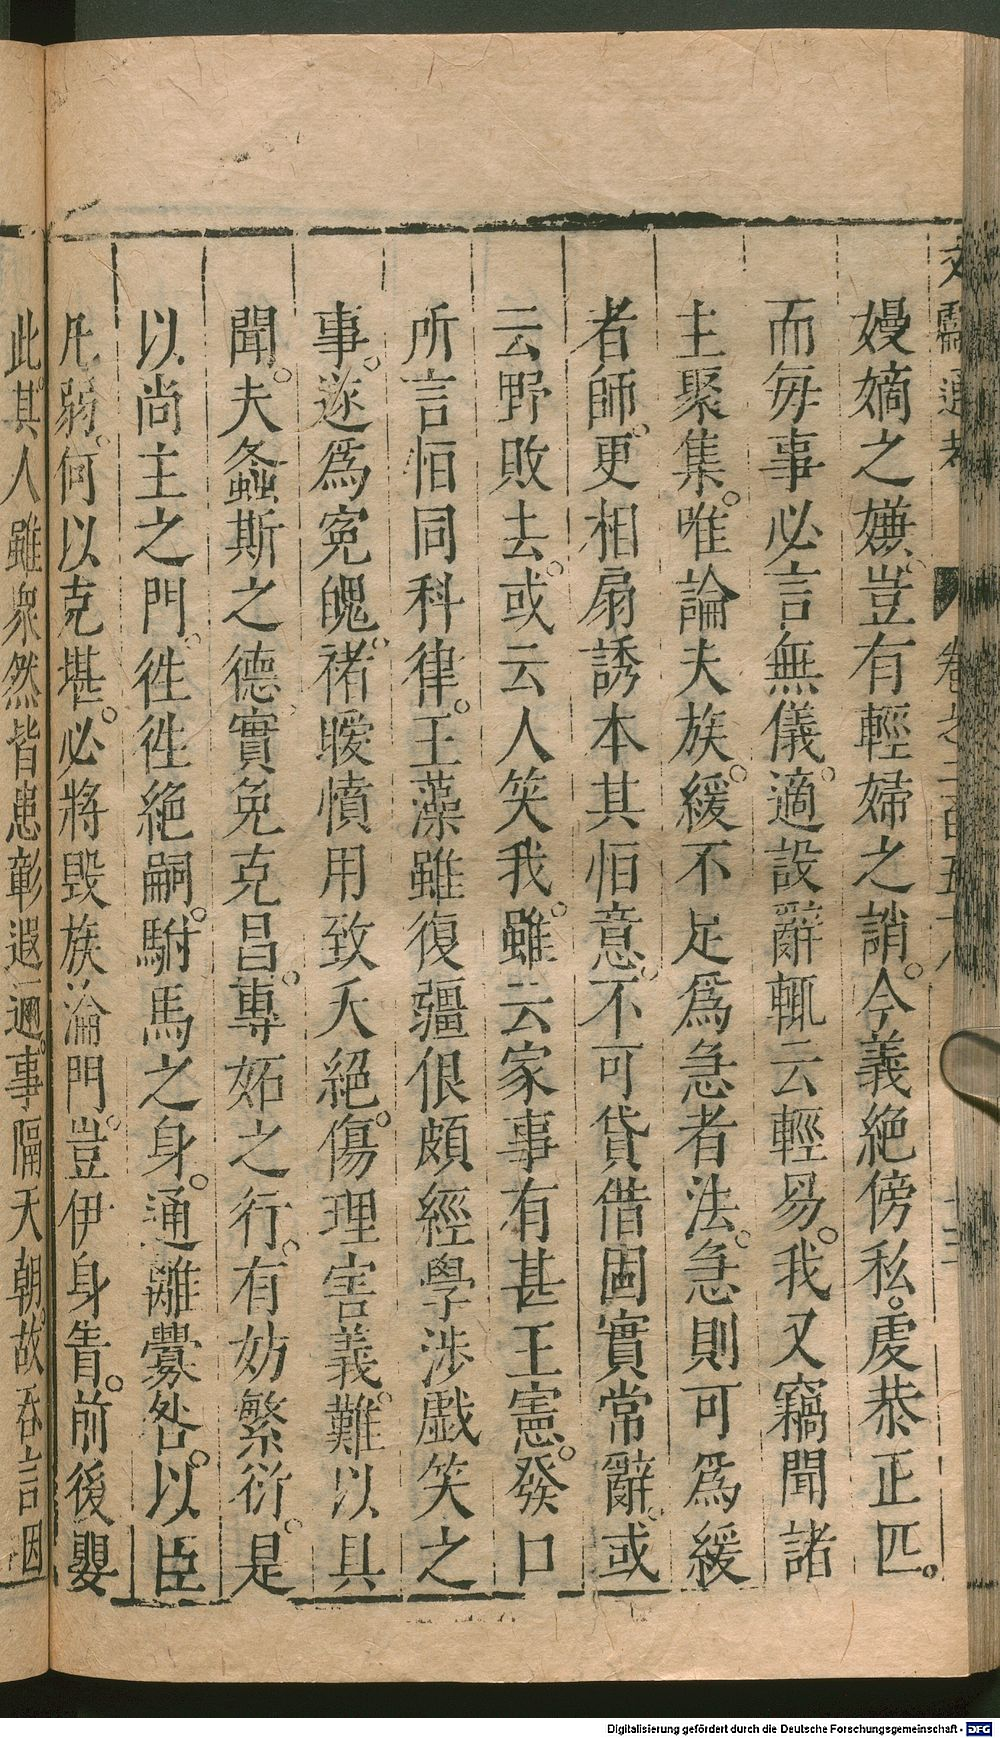 文獻通考 卷之二百五十八 十三
嫚嫡之嫌。豈有輕婦之誚。今義絶傍私。虔恭正匹。
而每事必言無儀。適設辭輒云輕易。我又竊聞諸
主聚集。唯論夫族。緩不足爲急者法。急則可爲緩
者師。更相扇誘本其恒意。不可貸借固實常辭。或
云野敗去。或云人笑我。雖云家事有甚王憲。發口
所言恒同科律。王藻雖復彊佷頗經學涉戲笑之
事。遂爲寃魄。褚曖憤用致夭絕。傷理害義。難以具
聞。夫螽斯之德。實免克昌。專妬之行。有妨繁衍。是
以尚主之門。徃徃絕嗣。駙馬之身。通離釁咎。以臣
凡弱。何以克堪。必將毁族淪門。豈伊身眚。前後嬰
此。其人雖衆然皆患彰遐邇。事隔天朝。故吞言因
Digitalisierung gefördert durch die Deutsche Forschungsgemeinschaft - DFG